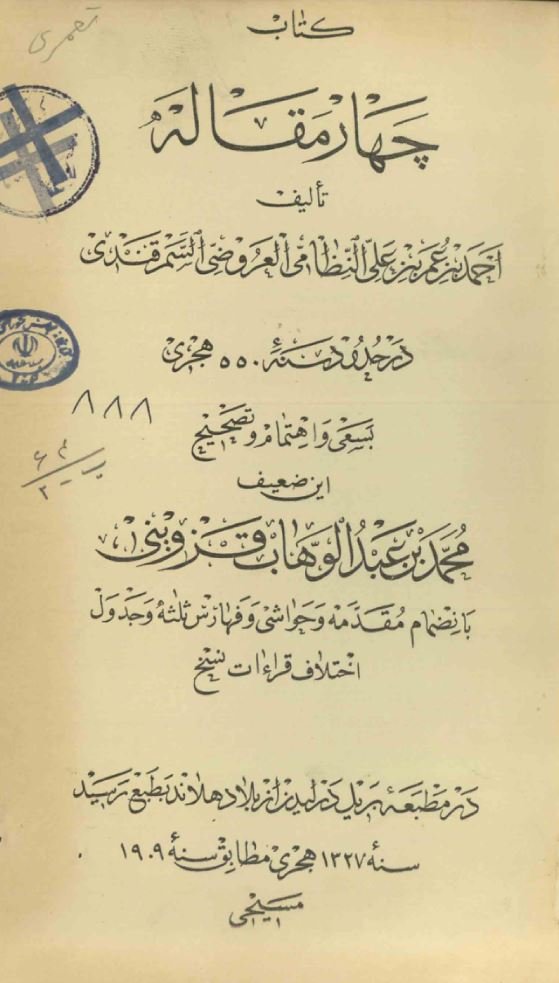 كتاب
چهار مقاله
تأليف
احمد بن عمر بن علی النظامی العروضی السمرقندی
در حدود سنهٔ ۵۵۰ هجری
بسعی و اهتمام و تصحیح
این ضعیف
محمد بن عبد الوهاب قزوینی
بانضمام مقدمه و حواشی و فهارس ثلثه و جدول
اختلاف قراءات نسخ
در مطبعهٔ بریل در لیدن از بلاد هلاند بطبع رسید
سنهٔ ۱۳۲۷ هجری مطابق سنهٔ ۱۹۰۹
مسیحی
۸۸۸